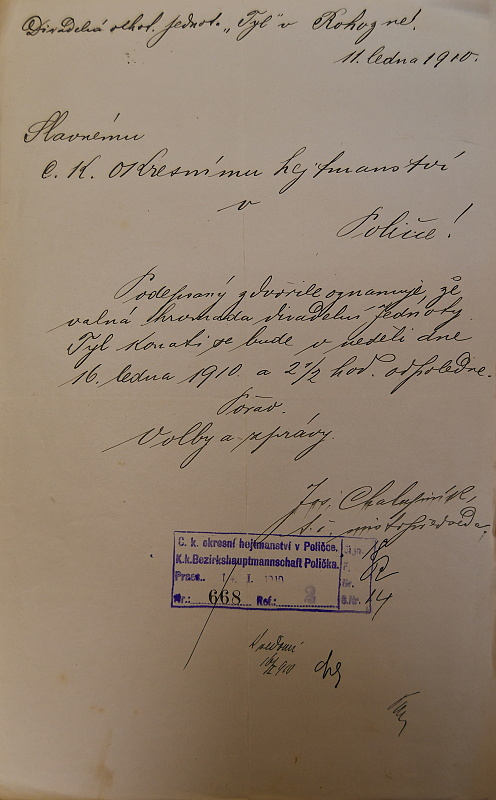 Divadelní ochot. jednota „Tyl" v Rohozné.
11. ledna 1910.
Slavnému
C. K. okresnímu hejtmanství
v
Poličce!
Podepsaný zdvořile oznamuje, že
valná hromada divadelní jednoty
Tyl konati se bude v neděli dne
16. ledna 1910. a 2 1/2 hod. odpoledne.
Pořad.
Volby a zprávy.
Jos.
t. č. místopředseda
C. k. okresní hejtmanství v Poličce.
K.k. Bezirkshauptmannschaft Polička.
Praes.. I. 1910
Nr.: 668 Ref.: 2
14